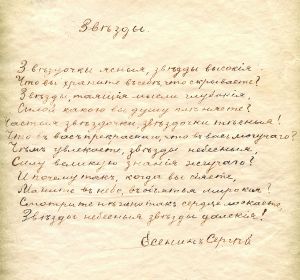 Звѣзды.
Звѣздочки ясныя, звѣзды высокія.
Что вы храните въ себѣ, что скрываете?
Звѣзды, таящія мысли глубокія,
Силой какою вы душу плѣняете?
Частыя звѣздочки, звѣздочки тѣсныя!
Что въ васъ прекраснаго, что въ васъ могучаго?
Чѣмъ увлекаете, звѣзды небесныя,
Силу великую знанія жгучаго?
И почему такъ, когда вы сіяете,
Маните въ небо, въ объятья широкія?
Смотрите нѣжно такъ, сердце ласкаете,
Звѣзды небесныя, звѣзды далекія!
Есенинъ Сергѣй